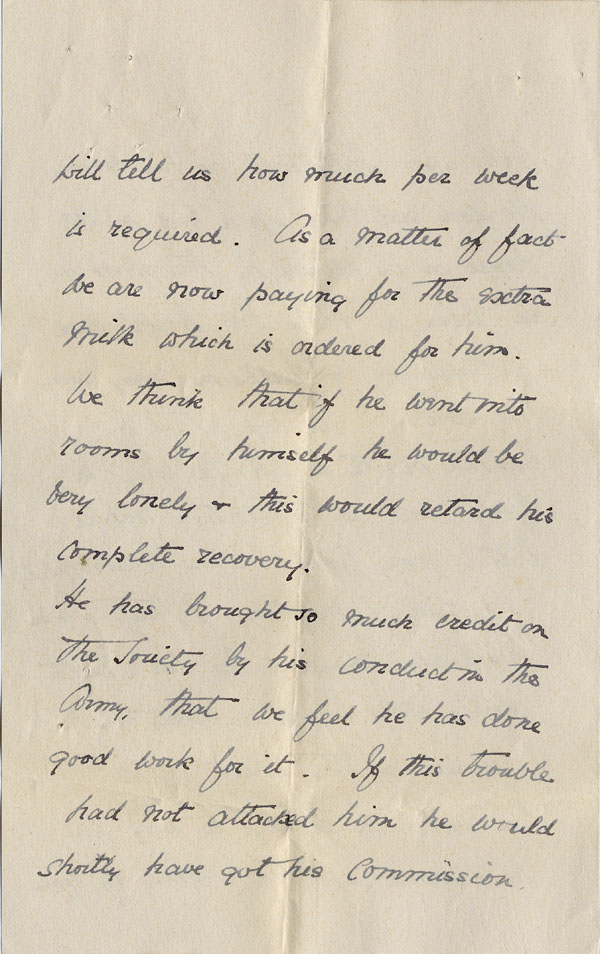 will tell us how much per week
is required. As a matter of fact
we are now paying for the extra
milk which is ordered for him.
We think that if he went into
rooms by himself he would be
very lonely & this would retard his
complete recovery.
He has brought so much credit on
the Society by his conduct in the
Army, that we feel he has done
good work for it. If this trouble
had not attacked him he would
shortly have got his Commission.